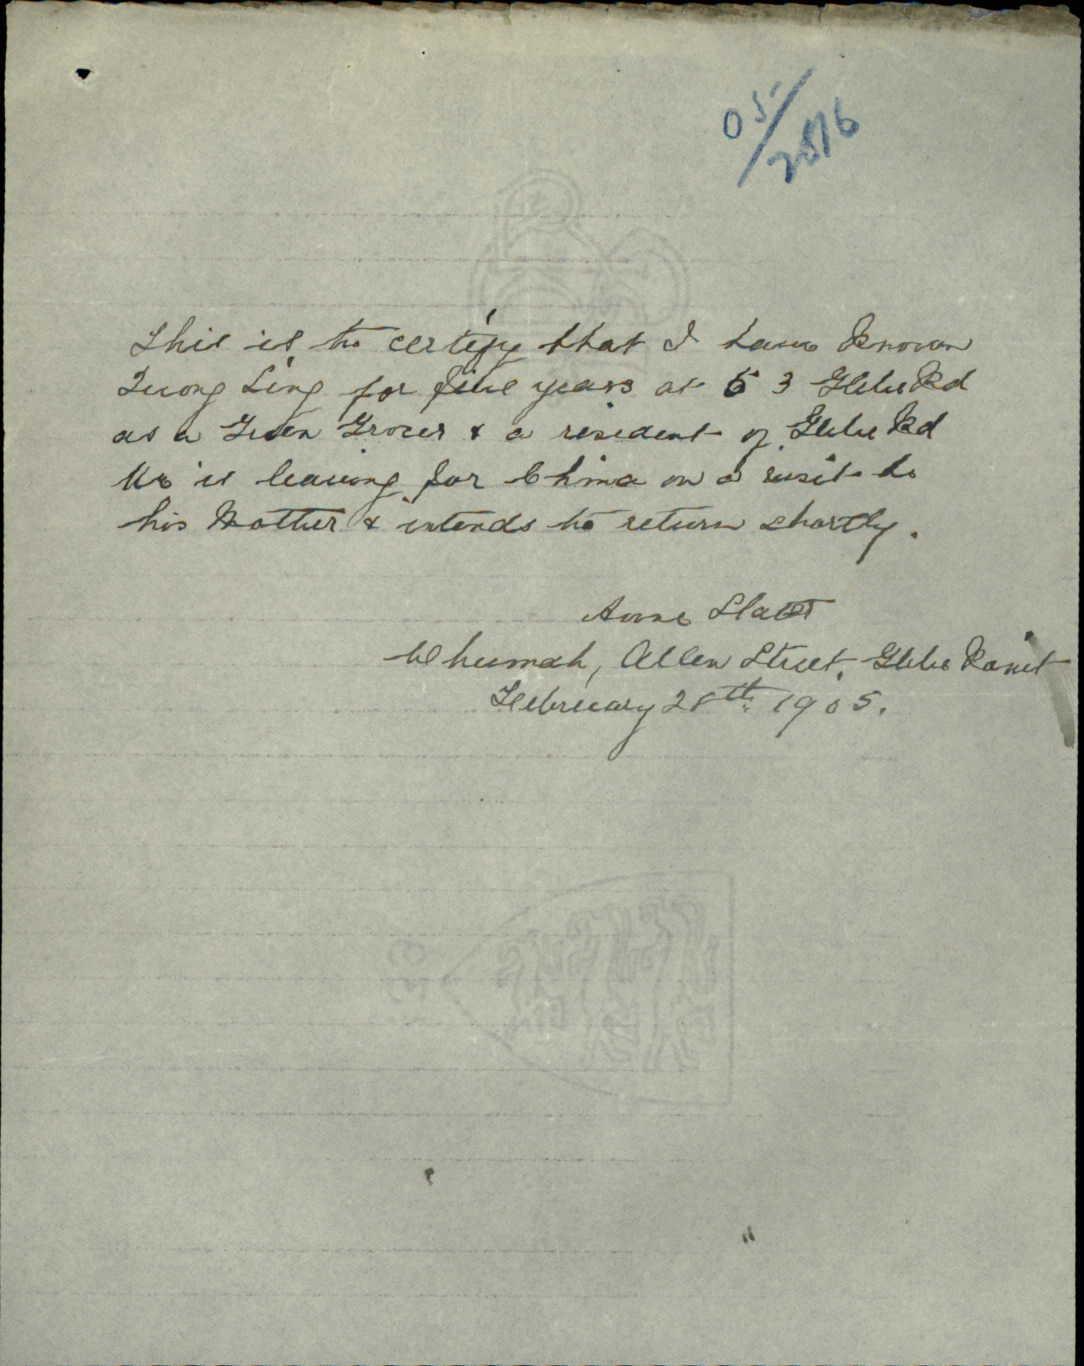 05/2816
This is to certify that I have known
Quong Ling for five years at 53 Glebe Rd
as a Green Grocer & a resident of Glebe Rd
He is leaving for China on a visit to
his Mother & intends to return shortly.
Anne
Allen Street, Glebe Point
February 28th 1905.